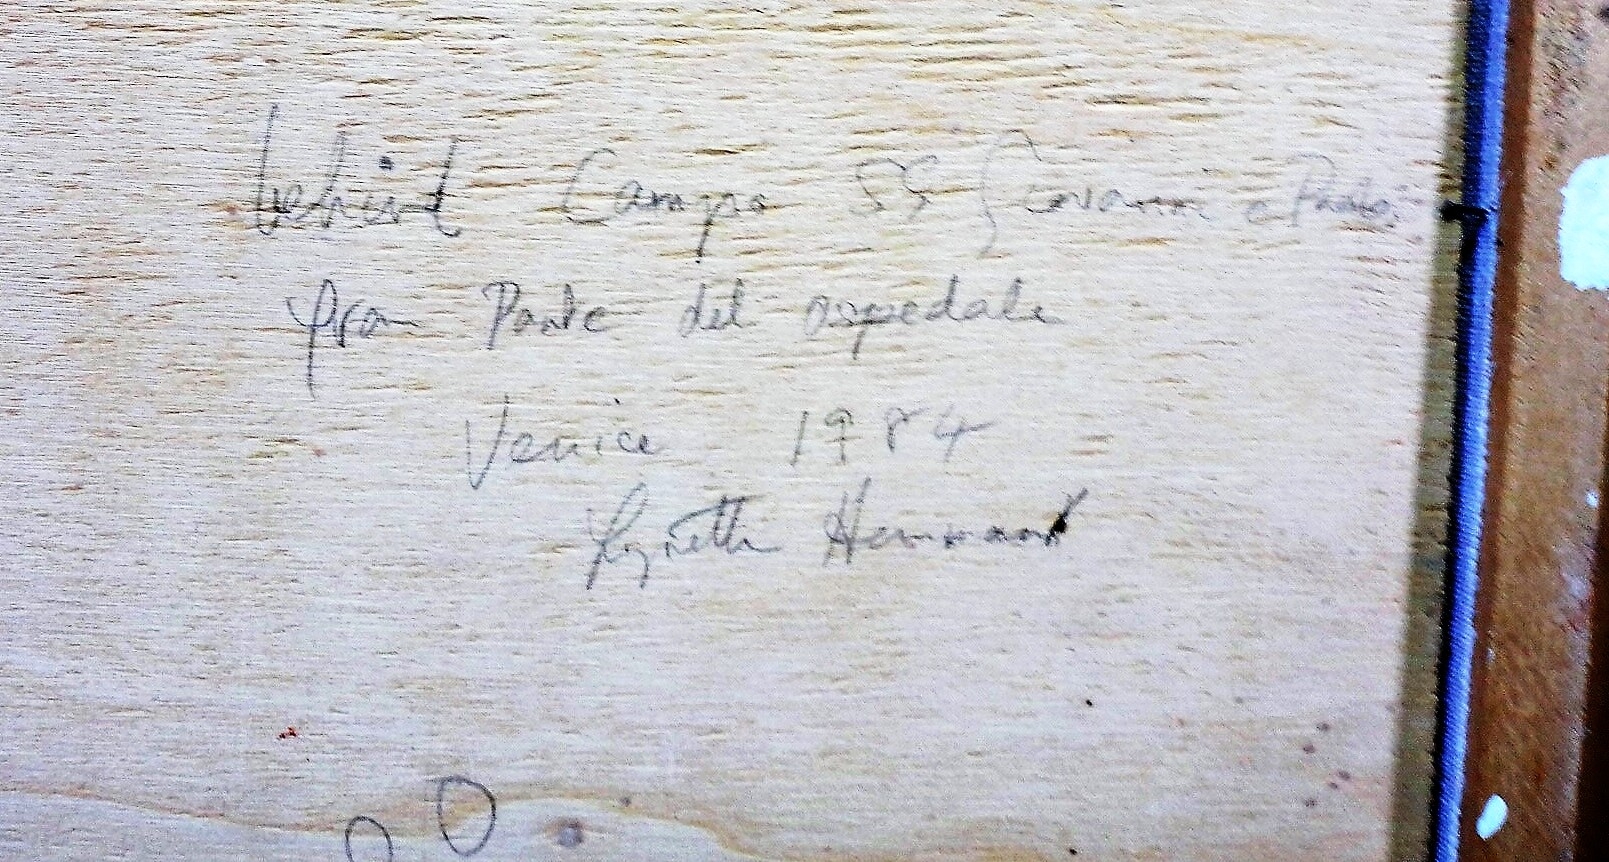 behind Campo SS Giovanni e Paolo,
from Ponte del ospedale
Venice 1984
Lyneth Hammond